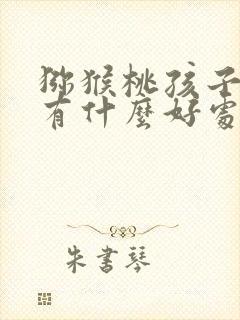 猕猴桃孩子
有什麼好處
朱書琴